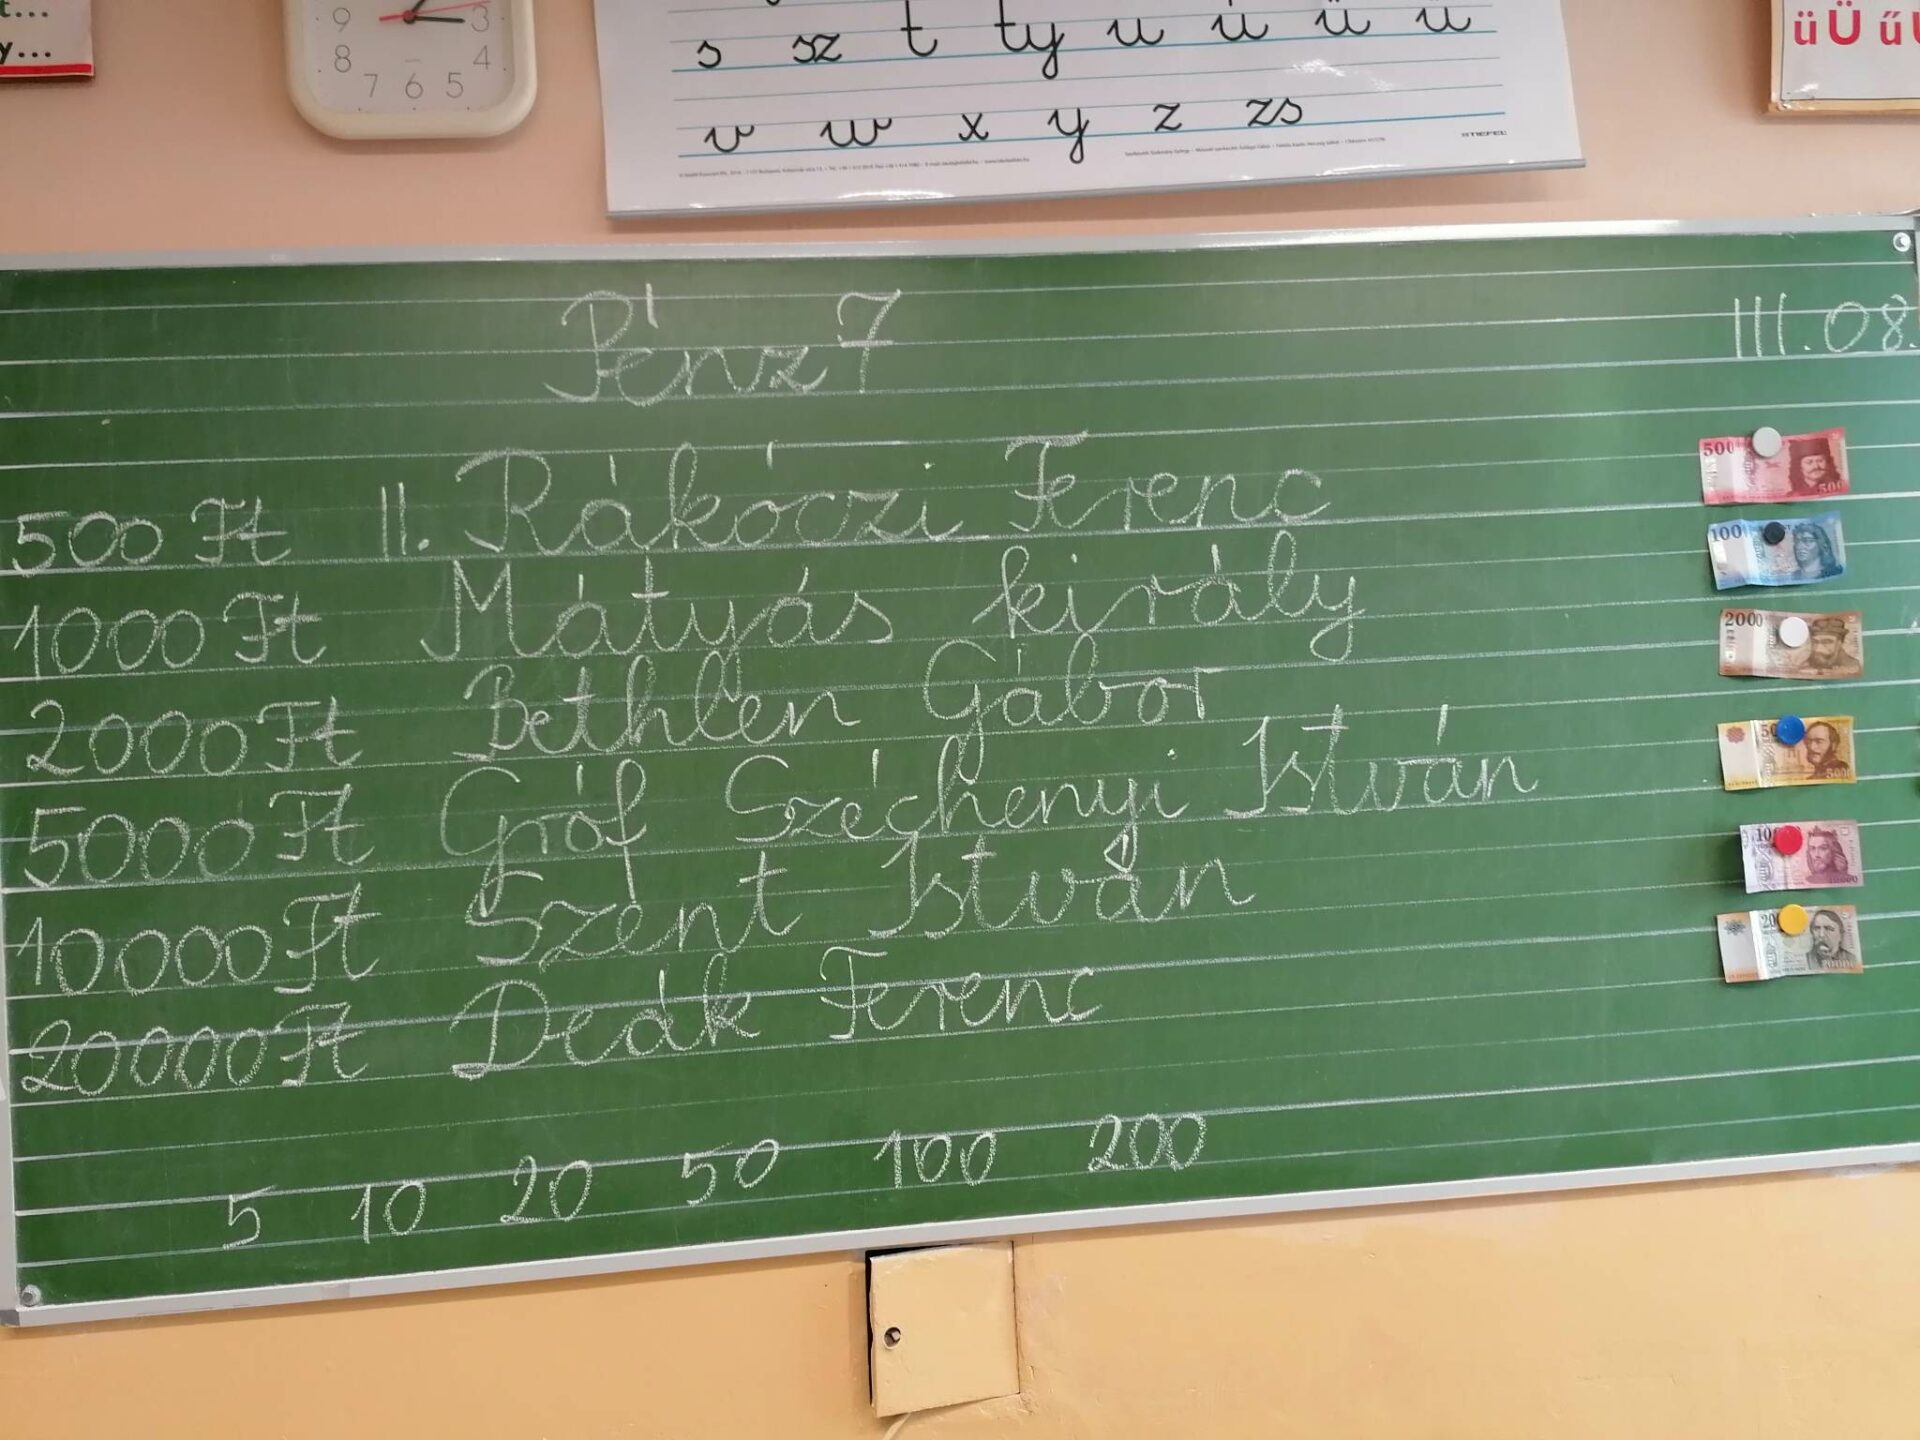 t...
y...
9 3
8 4
7 6 5
s sz t ty u ú ü ű
v w x y z zs
STIEFEL
ü Ü ű
Pénz7
III.08.
500 Ft II. Rákóczi Ferenc
1000 Ft Mátyás király
2000 Ft Bethlen Gábor
5000 Ft Gróf Széchenyi István
10000 Ft Szent István
20000 Ft Deák Ferenc
5 10 20 50 100 200
500
500
100
2000
50
5000
10
10000
20
20000